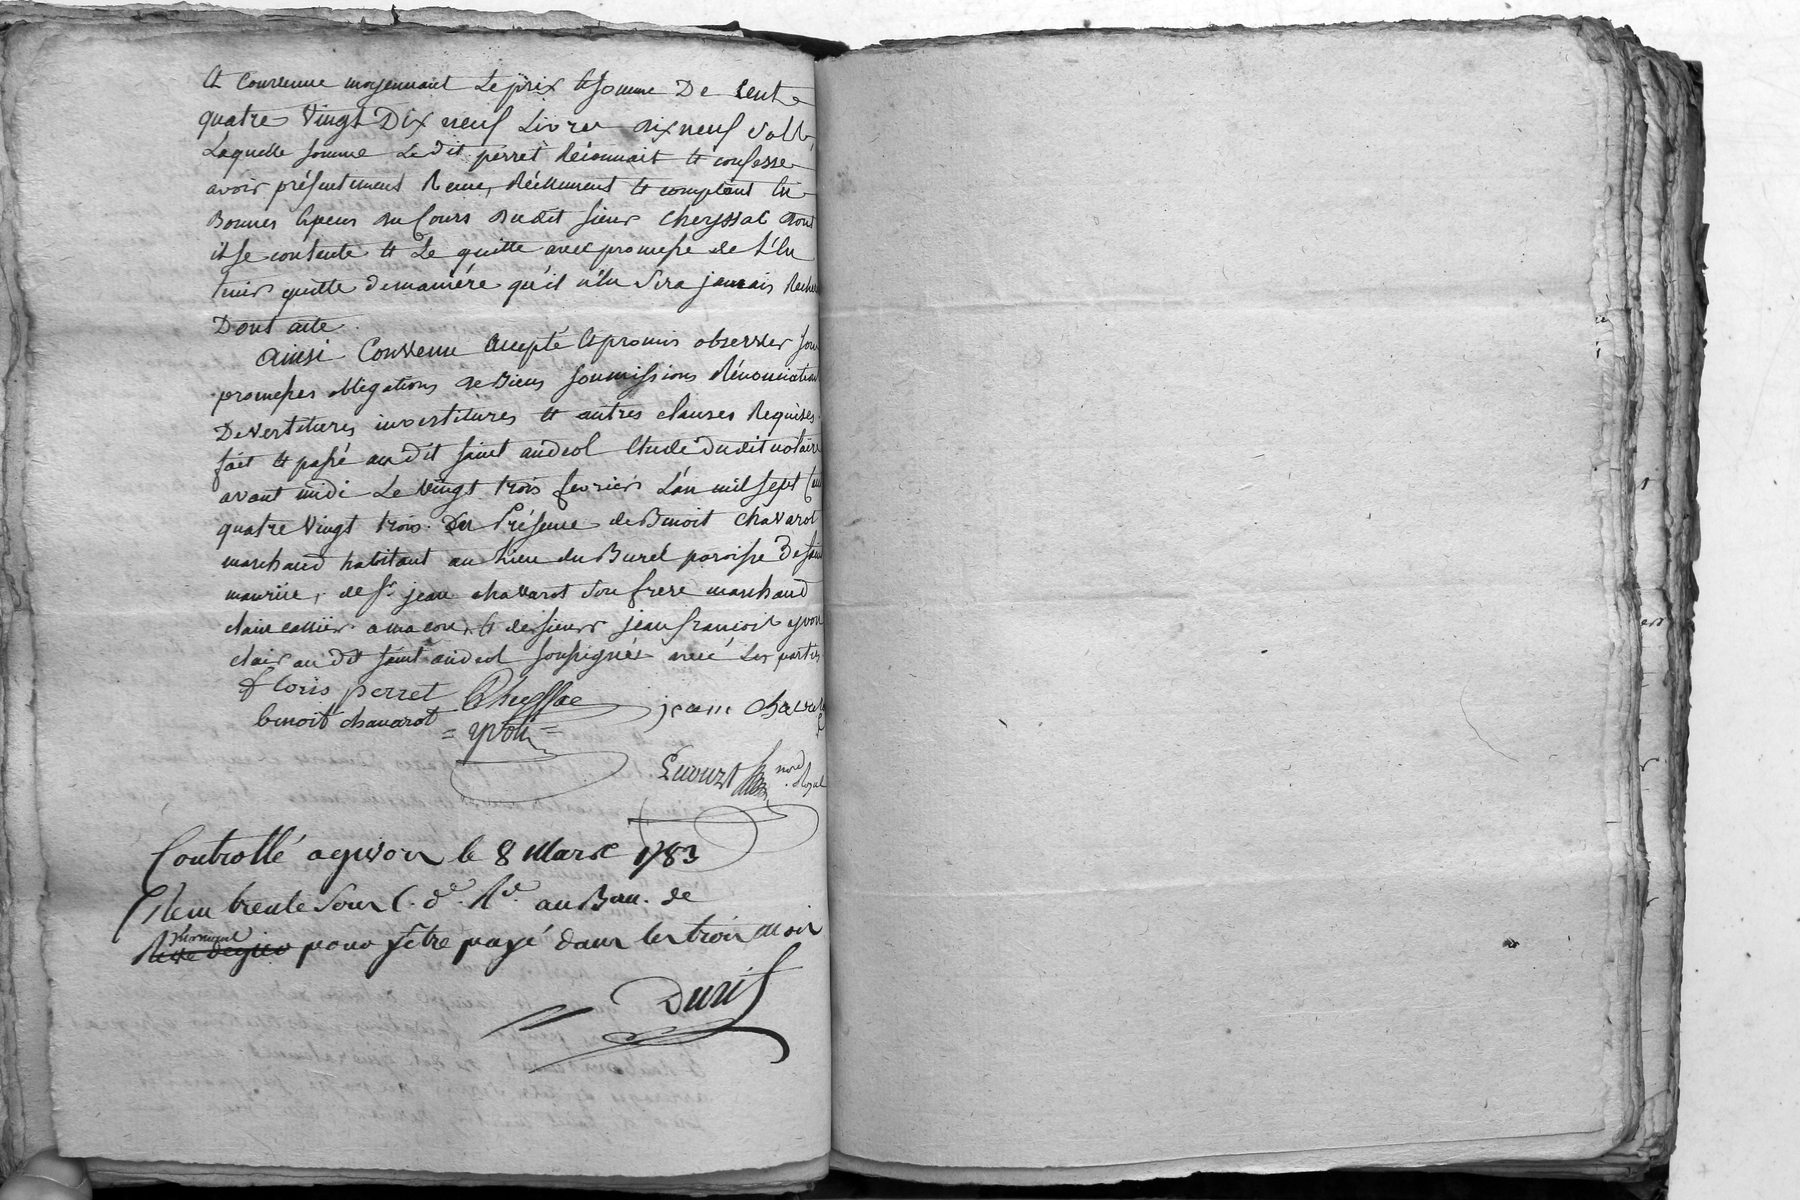 et Convenue moyennant Le prix et somme De Cent
quatre vingt Dix neuf Livres dix neuf solls
Laquelle somme Le dit perret Réconnait et confesse
avoir présentement Recue, Réellement et comptant En
Bonnes Especes du Cours dudit sieur Cheyssac dont
il se contente et Le quitte avec promesse de L'En
tenir quitte demaniére qu'il n'En sera jamais Recher
Dont acte.
Ainsi Convenu accepté et promis observer sous
promesses obligations de Biens soumissions Rénonciations
Devestitures investitures et autres clauses Requises
fait et passé au dit saint andeol Etude dudit notaire
avant midi Le vingt trois fevrier L'an mil sept Cent
quatre vingt trois. En Présence de Benoit chavarot
marchand habitant au Lieu du Burel paroisse De saint
maurice, de Sr. jean chavarot son frere marchand
et de sieur jean francois yvon
clair au dit saint andeol soussignés avec Les parties
floris perret Cheyssac jean Chavarot
benoit chavarot = yvon =
nore Royal
Controllé a givors le 8 Mars 1783
Recu trente sous C. de. Re. au Bau. de
pour y etre payé dans les trois mois
Durif